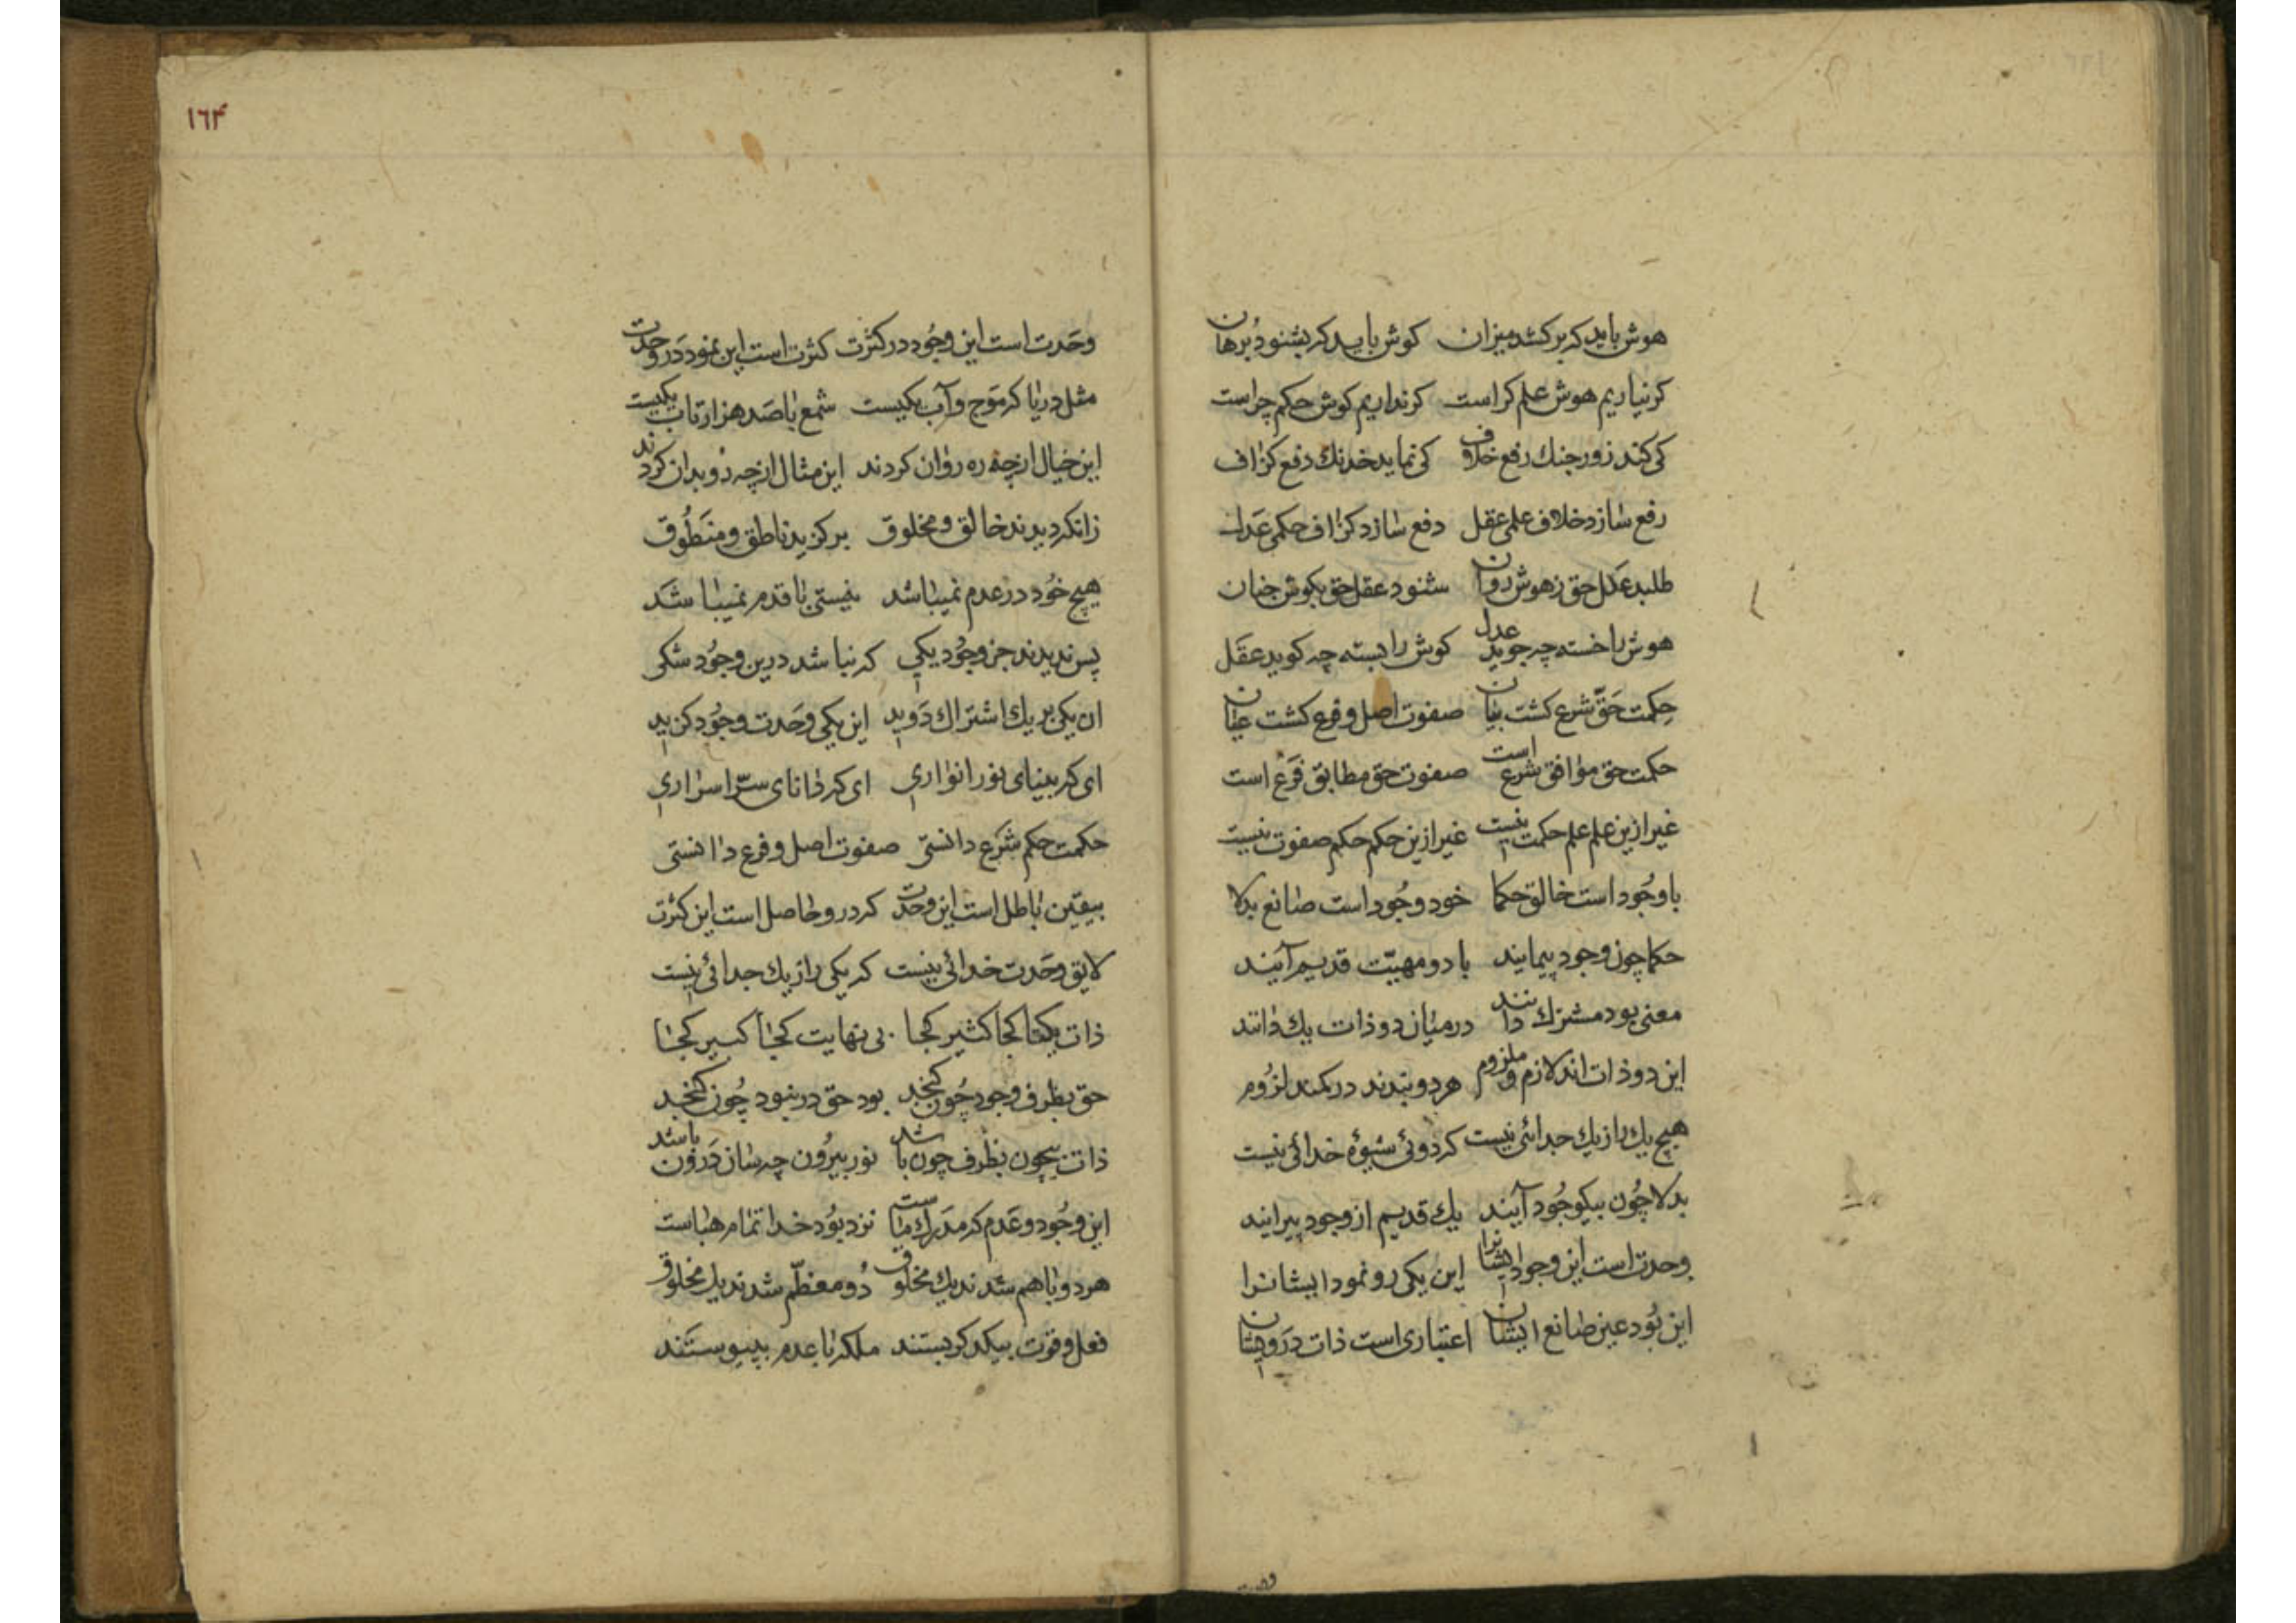 هوش باید که برکشد میزان کوش باید که بشنود برهان
کر نیاریم هوش علم کراست کر نداریم کوش حکم چراست
کی کند زور جنك رفع خلاف کی نماید خدنك دفع کزاف
رفع سازد خلاف علمی عقل دفع سازد کزاف حکمی عدل
طلبد عدل حق ز هوش روان شنود عقل حق بکوش جنان
هوش را خسته چه جوید عدل کوش را بسته چه کوید عقل
حکمت حق شرع کشت بنیان صفوت اصل و فرع کشت عیان
حکمت حق موافق شرع است صفوت حق مطابق فرع است
غیر ازین علم علم حکمت نیست غیر ازین حکم حکم صفوت نیست
با وجود است خالق حکما خود وجود است صانع بدلا
حکما چون وجود پیمایند با دو مهیت قدیم آیند
معنی بود مشترك دانند درمیان دو ذات یك دانند
این دو ذات اند لازم و ملزوم هر دو بندند در کمند لزوم
هیچ یك را ز یك جدائی نیست که دوئی شیوهٔ خدائی نیست
بدلا چون بیکوجود آیند یك قدیم از وجود پیرایند
وحدت است این وجود ایشانرا این یکی رو نمود ایشانرا
این بود عین صانع ایشان اعتباری است ذات درویشان
وحدت
١٦٤
وحدت است این وجود در کثرت کثرت است این نمود در وحدت
مثل دریا که موج و آب یکیست شمع با صد هزار تاب یکیست
این خیال از چه ره روان کردند این مثال از چه رو بدان کردند
زانکه دیدند خالق و مخلوق برکزید ناطق و منطوق
هیچ خود در عدم نمیباشد نیستی با قدم نمیباشد
پس ندیدند جز وجود یکی که نباشد درین وجود شکی
ان یکی بر یك اشتراك دوید این یکی وحدت وجود کزید
ای که بینای نور انواری ای که دانای سرّ اسراری
حکمت حکم شرع دانستی صفوت اصل و فرع دانستی
بیقین باطل است این وحدت که درو حاصل است این کثرت
لایق وحدت خدائی نیست که یکی را ز یك جدائی نیست
ذات یکتا کجا کثیر کجا بی نهایت کجا کسیر کجا
حق بظرف وجود چون کنجد بود حق در نبود چون کنجد
ذات بیچون بظرف چون باشد نور بیرون چه سان درون باشد
این وجود و عدم که مدرك ماست نزد بود خدا تمام هباست
هر دو با هم شدند یك مخلوق دو معظّم شدند یك مخلوق
فعل و قوت بیکدکر بستند ملکه با عدم بپیوستند